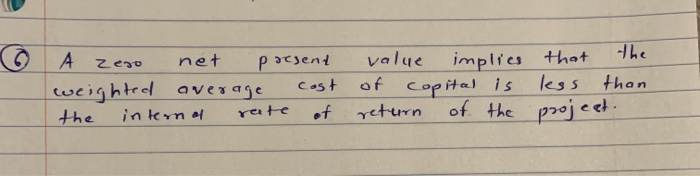 ⑥ A zero net present value implies that the
weighted average cost of capital is less than
the internal rate of return of the project.